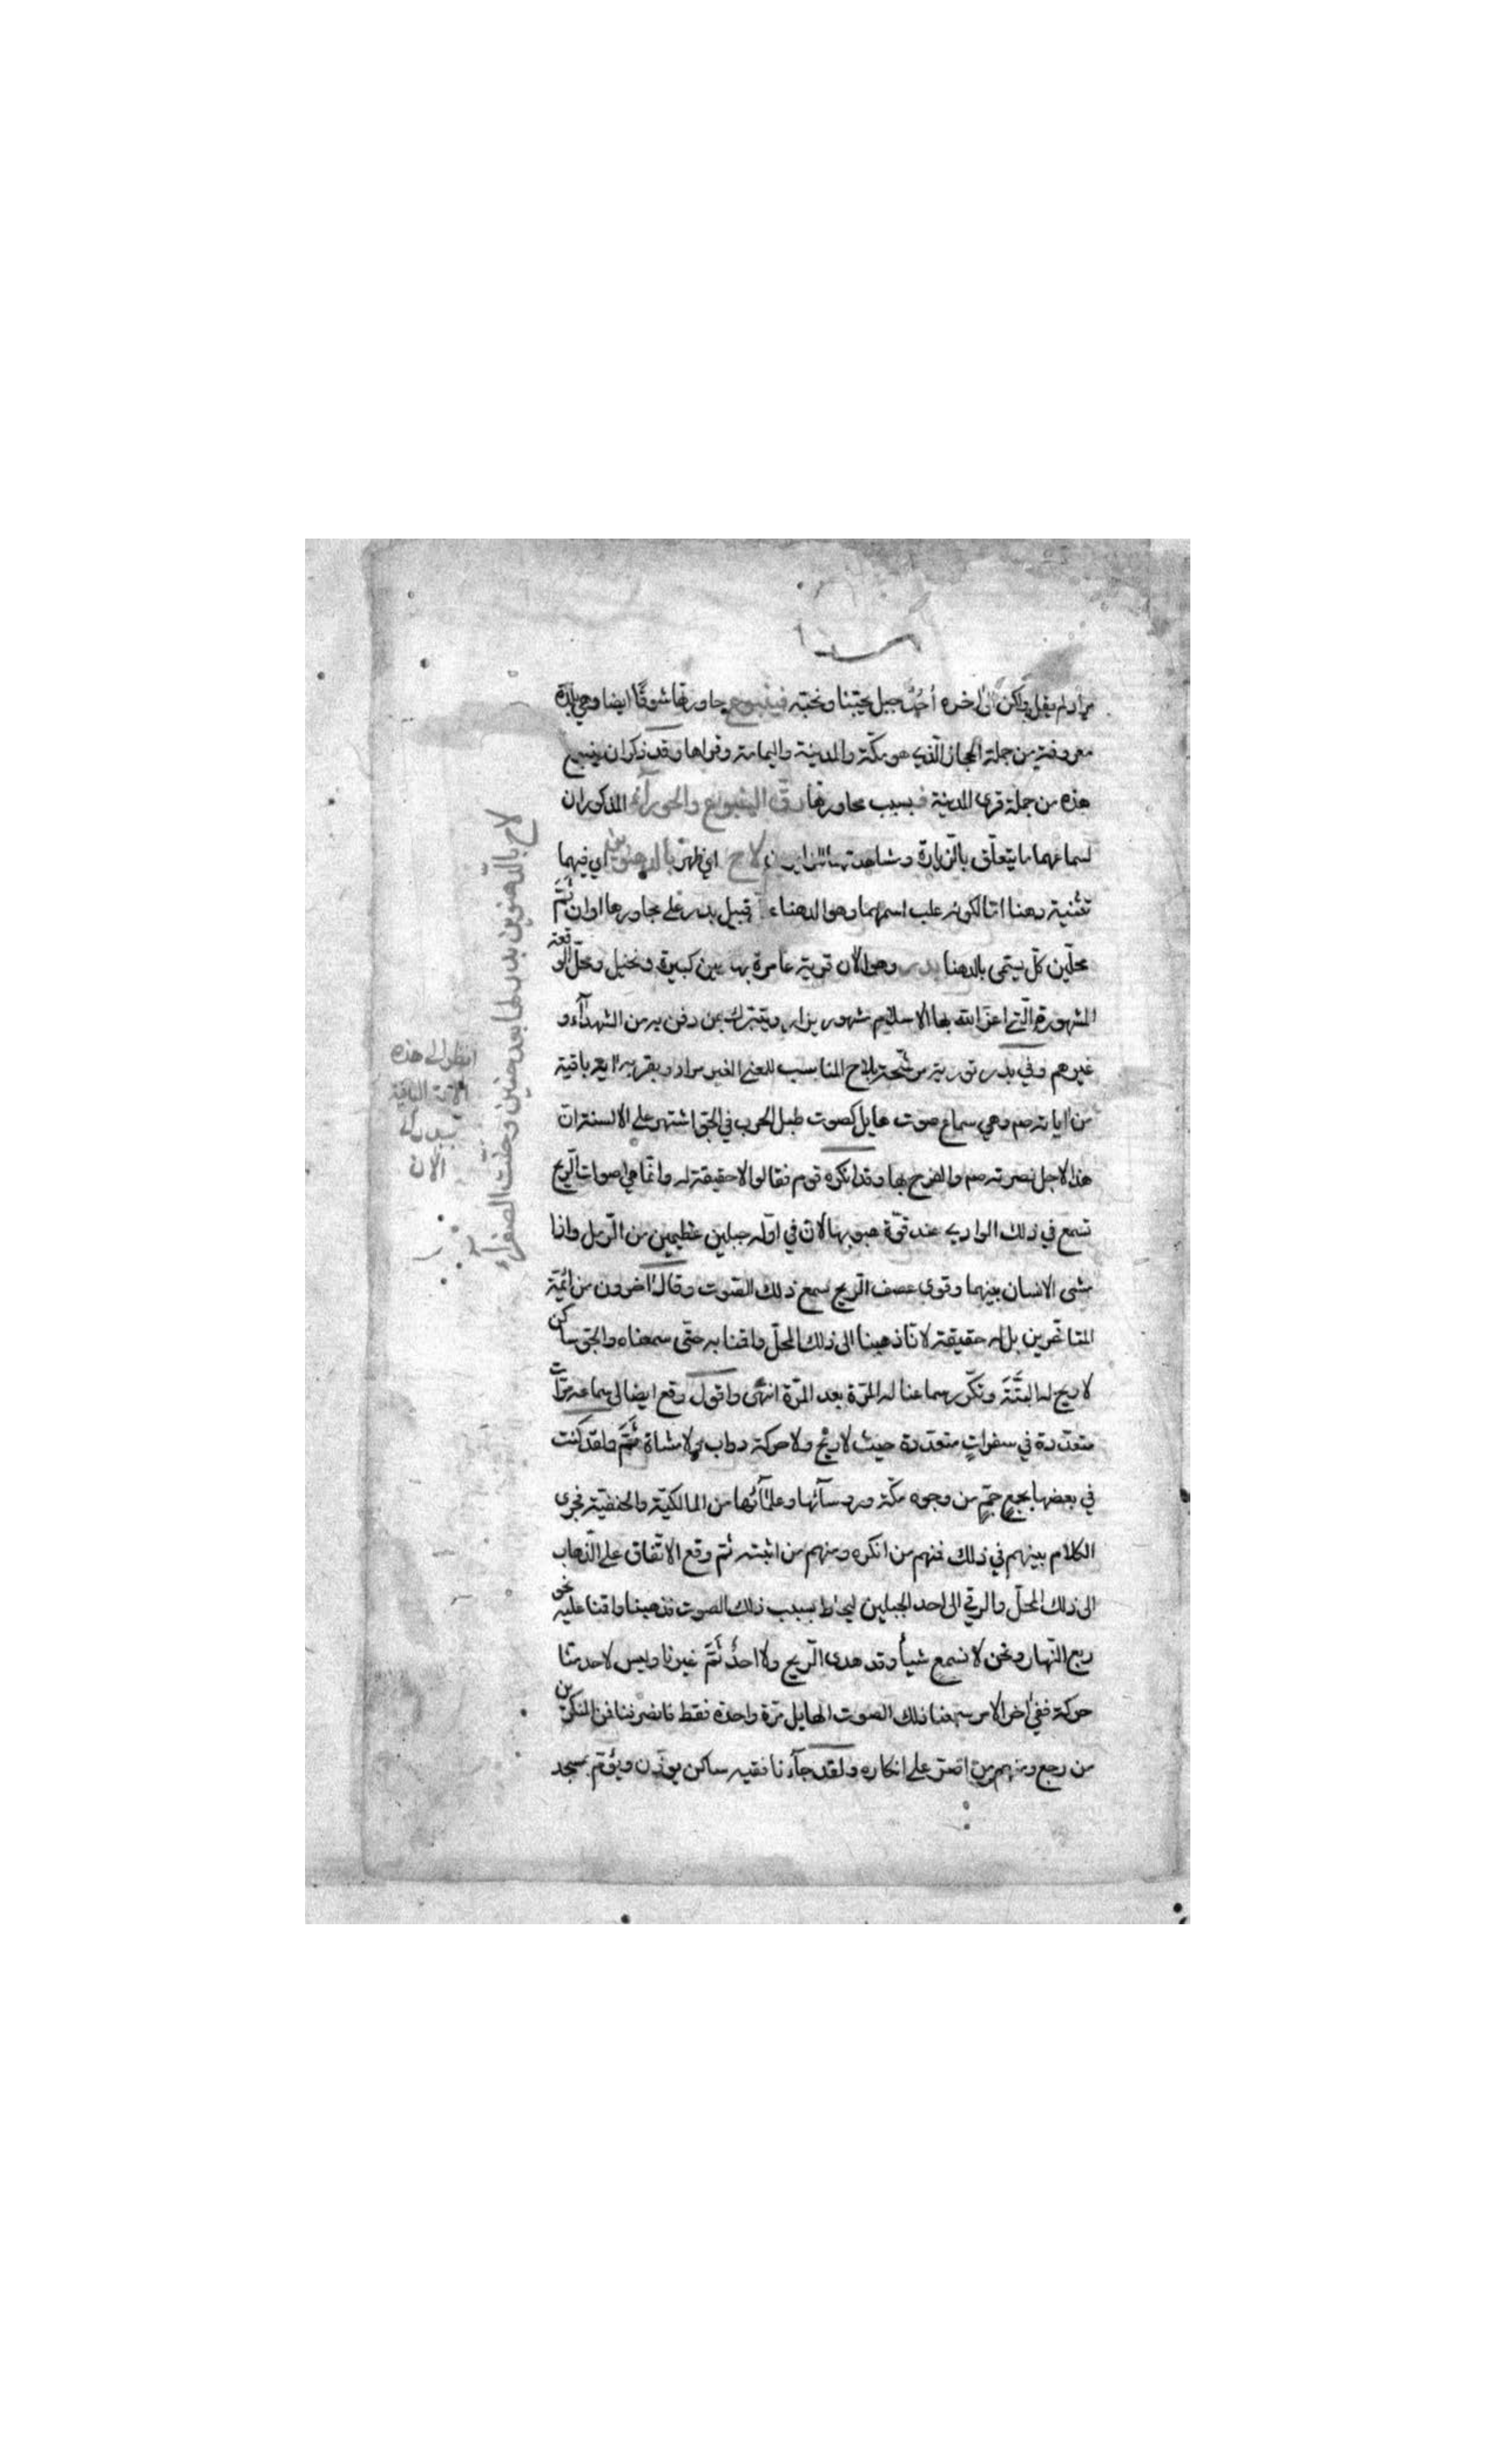 مراد لم يقبل ولكن الى اخره أُحُدٌ جبل يحبّنا ونحبّه فينبوع جاورتها شوقًا ايضا وهي بلدة
معروفة من جملة الحجاز الّذي هو مكّة والمدينة واليمامة وقراها وقد ذكر ان ينبع
هذه من جملة قرى المدينة فبسبب مجاورتها رقّ الينبوع والحورآء المذكوران
لسماعهما ما يتعلّق بالزيارة ومشاهدتهما للزايرين لاح اي ظهر بالدهنوين اي فيهما
تثنية دهنا امّا لكونه غلب اسمهما وهو الدهناء قبيل بدر على مجاورها او ان ثَمَّ
محلّين كلّ يسمّى بالدهنا بدر وهو الان قرية عامرة بها عين كبيرة ونخيل ومحلّ الوقعة
المشهورة الّتي اعزّ الله بها الاسلام مشهور يزار ويتبرّك بمن دفن به من الشهدآء و
غيرهم وفي بدر تورية مرشّحة بلاح المناسب للمعنى الغير مراد وبقربه اية باقية
من اياته صم وهي سماع صوت هايل كصوت طبل الحرب في الجوّ اشتهر على الالسنة ان
هذا لاجل نصرته صم والفرح بها وقد انكره قوم فقالوا لا حقيقة له وانّما هي اصوات الرّيح
تسمع في ذلك الوادي عند قوّة هبوبها لانّ في اوّله جبلين عظيمين من الرّمل واذا
مشى الانسان بينهما وقوي عصف الرّيح سمع ذلك الصّوت وقال اخرون من ائمّة
المتاخّرين بل له حقيقة لانّا ذهبنا الى ذلك المحلّ واقمنا به حتّى سمعناه والجوّ ساكن
لا ريح له البتّة وتكّرر سماعنا له المرّة بعد المرّة انتهى واقول وقع ايضا لي سماعه مرّات
متعدّدة في سفراتٍ متعدّدة حيث لا ريح ولا حركة دواب ولا مشاة ثَمَّ ولقد كنت
في بعضها بجمعٍ جمّ من وجوه مكّة ورءوسآئها وعلمآئها من المالكيّة والحنفيّة فجرى
الكلام بينهم في ذلك فمنهم من انكره ومنهم من اثبته ثمّ وقع الاتّفاق على الذّهاب
الى ذلك المحلّ والرقي الى احد الجبلين ليحاط بسبب ذلك الصوت فذهبنا واقمنا عليه نحو
ربع النّهار ونحن لا نسمع شيأ وقد هدى الرّيح ولا احدٌ ثَمَّ غيرنا وليس لاحد منّا
حركة ففي اخر الامر سمعنا ذلك الصوت الهايل مرّة واحدة فقط فانصرفنا فمن المنكرين
من رجع ومنهم من اصّر على انكاره ولقد جآءنا فقيه ساكن يوذّن ويؤمّ بمسجد
لاح بالدّهنوين بدر لها بعد حنين وحنّت الصفرآء
انظر الى هذه
الاية الباقية
ببدر الى
الان